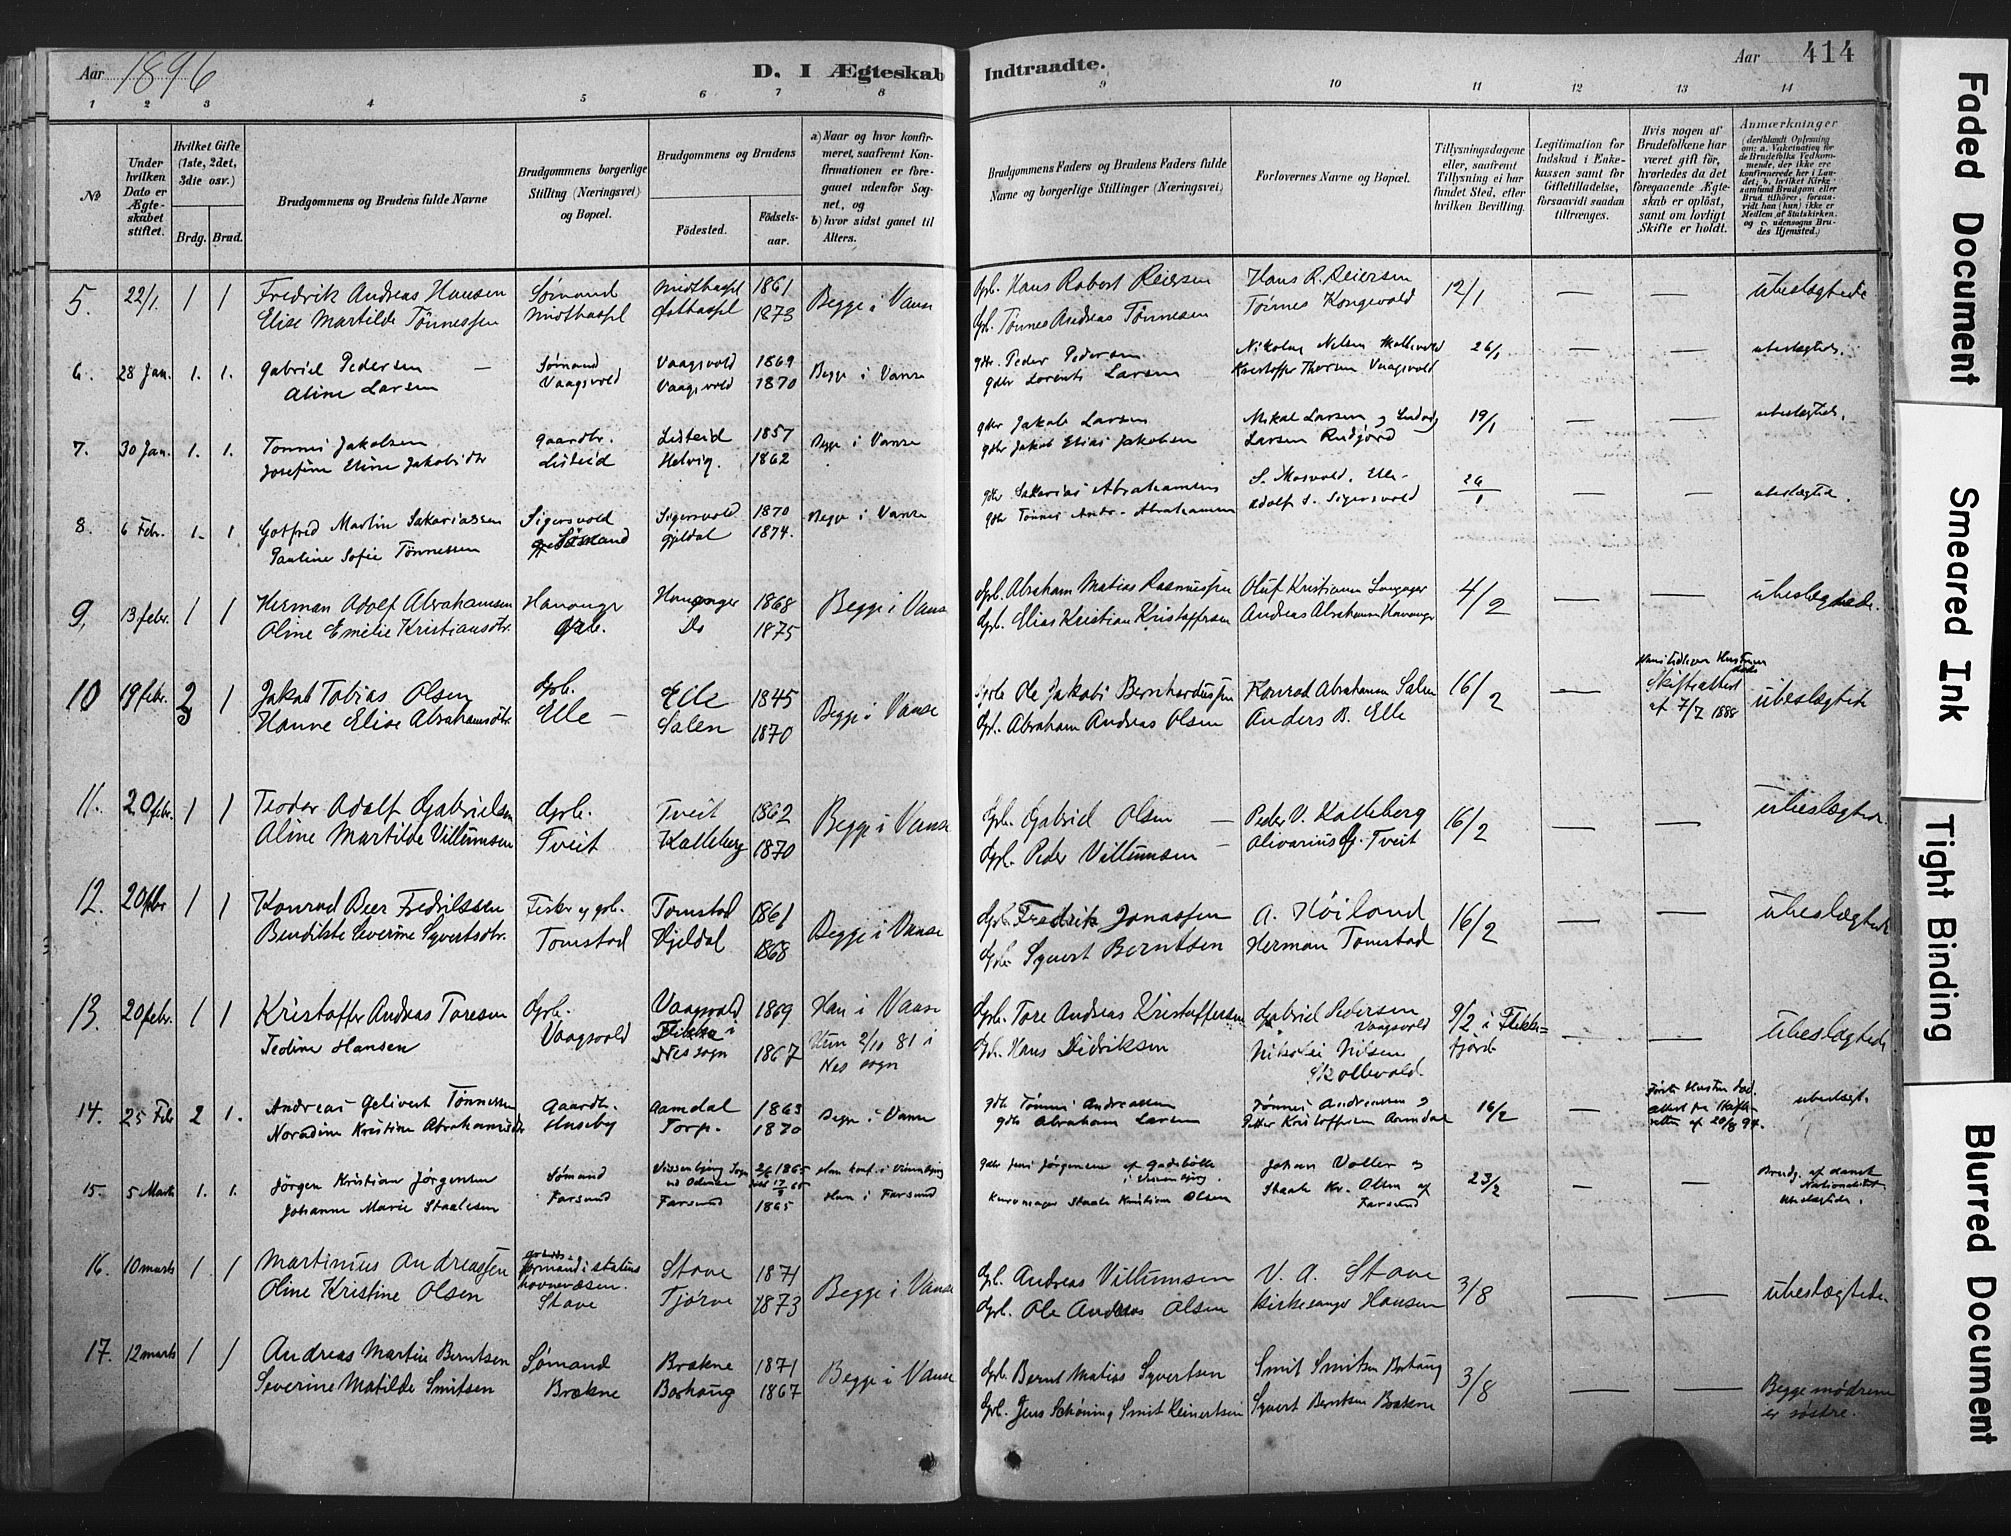 Aar 1896
D. I Ægteskab Indtraadte.
Aar 414
1 2 3 4 5 6 7 8 9 10 11 12 13 14
No
Under hvilken Dato er Ægteskabet stiftet.
Hvilket Gifte (1ste, 2det, 3die osv.)
Brdg. Brud.
Brudgommens og Brudens fulde Navne
Brudgommens borgerlige Stilling (Næringsvei) og Bopæl.
Brudgommens og Brudens
Födested. Födselsaar.
a) Naar og hvor konfirmeret, saafremt Konfirmationen er foregaaet udenfor Sognet, og
b) hvor sidst gaaet til Alters.
Brudgommens Faders og Brudens Faders fulde Navne og borgerlige Stillinger (Næringsvei)
Forlovernes Navne og Bopæl.
Tillysningsdagene eller, saafremt Tillysning ei har fundet Sted, efter hvilken Bevilling.
Legitimation for Indskud i Enkekassen samt for Giftetilladelse, forsaavidt saadan tiltrænges.
Hvis nogen af Brudefolkene har været gift för, hvorledes da det foregaaende Ægteskab er oplöst, samt om lovligt Skifte er holdt.
Anmærkninger (deriblandt Oplysning om: a. Vakcination for de Brudefolks Vedkommende, der ikke ere konfirmerede her i Landet; b. hvilket Kirkesamfund Brudgom eller Brud tilhörer, forsaavidt han (hun) ikke er Medlem af Statskirken, og c. udensogns Brudes Hjemsted.)
5. 22/1. 1 1 Fredrik Andreas Hansen Sømand Midthassel 1861 Begge i Vanse Gbr. Hans Robert Reiersen Hans R. Reiersen 12/1 — — ubeslægtede
Elise Martilde Tönnessen Midthassel Østhassel 1873 Gbr. Tönnes Andreas Tönnesen Tönnes Kongevold
6. 28 Jan. 1. 1. Gabriel Pedersen — Sömand Vaagsvold 1869 Begge i Vanse gdbr Peder Pedersen Nikolay Nilsen Skollevold 26/1 — — ubeslægtede.
Aline Larsen Vaagsvold Vaagsvold 1870 gdbr Lorents Larsen Kristoffer Thorsen Vaagsvold
7. 30 Jan. 1. 1. Tönnes Jakobsen gaardbr. Listeid 1857 Begge i Vanse gdbr Jakob Larsen Mikal Larsen og Ludvig 19/1 — — ubeslægtede.
Josefine Eline Jakobsdtr Listeid Helvig. 1862 gdbr Jakob Elias Jakobsen Larsen Rudjord
8. 6 Febr. 1. 1. Gotfred Martin Sakariassen Sigersvold Sigersvold 1870 Begge i Vanse gdbr Sakarias Abrahamsen S. Mosvold, Elle 26/1 — — ubeslægtede.
Pauline Sofie Tönnessen Sömand Gjeldal 1874. gdbr Tönnes Andr. Abrahamsen Adolf S. Sigersvold
9. 13 febr. 1 1 Herman Adolf Abrahamsen Hananger Hananger 1868 Begge i Vanse Gbr. Abraham Matias Rasmussen Oluf Kristiansen Langager 4/2 — — ubeslægtede.
Oline Emilie Kristiansdtr. Gbr. Do 1875 Gbr. Elias Kristian Kristoffersen Andreas Abrahamsen Hananger
10 19 febr. 2 1 Jakob Tobias Olsen Gbr. Elle 1845 Begge i Vanse Gbr. Ole Jakobi Bernhardussen Konrad Abrahamsen Salen 16/2 — Skifteattest af 7/7 1888 ubeslægtede
Hanne Elise Abrahamsdtr. Elle — Salen 1870 Gbr. Abraham Andreas Olsen Anders B. Elle
11. 20 febr. 1 1 Teodor Adolf Gabrielsen Gbr. Tveit 1862 Begge i Vanse Gbr. Gabriel Olsen — Peder V. Kalleberg 16/2 — — ubeslægtede.
Aline Martilde Villumsen Tveit Kalleberg 1870 Gbr. Peder Villumsen — Olivarius G. Tveit
12. 20 febr 1 1 Konrad Beer Fredriksen Fisker og gbr. Tomstad 1861 Begge i Vanse Gbr. Fredrik Jonassen A. Höiland 16/2 — — ubeslægtede
Bendikte Severine Syvertsdtr. Tomstad Gjeldal 1868 Gbr. Syvert Berntsen Herman Tomstad
13. 20 febr. 1 1 Kristoffer Andreas Toresen Gbr. Vaagsvold 1869 Han i Vanse Gbr. Tore Andreas Kristoffersen Gabriel Pedersen Vaagsvold 9/2 i Flekkefjord — — ubeslægtede
Tedine Hansen Vaagsvold Flikka i Nes sogn 1867 Hun 2/10 81 i Nes sogn Gbr. Hans Didriksen Nikolai Nilsen Skollevold.
14. 25 Feb 2 1. Andreas Gelivert Tönnessen Gaardbr. Aamdal 1863 Begge i Vanse gdbr Tönnes Andreassen Tönnes Andreassen og 16/2 — ubeslægt.
Noradine Kristine Abrahamsdtr Huseby Torp. 1870 gdbr Abraham Larsen Petter Kristoffersen Aamdal
15. 5 Marts 1. 1. Jörgen Kristian Jörgensen Sömand Vissenbjerg Sogn ved Odense 1865 gdbr Jens Jörgensen af Johan Voller og 23/2 — — Brudg. af dansk Nationalitet. Ubeslægtede.
Johanne Marie Staalesen Farsund Farsund 1865 Hun i Farsund Kurvmager Staale Kristian Olsen Staale Kr. Olsen af Farsund
16. 10 marts 1 1 Martinius Andreassen formand i statens havnevæsen. Stave 1871 Begge i Vanse Gbr. Andreas Villumsen V. A. Stave 3/8 — — ubeslægtede.
Oline Kristine Olsen Stave Tjörve 1873 Gbr. Ole Andreas Olsen Kirkesanger Hansen
17. 12 marts 1 1 Andreas Martin Berntsen Sömand Brekne 1871 Begge i Vanse Gbr. Bernt Matias Syvertsen Smit Smitsen Borhaug 3/8 — — Begge mødrene er søstre.
Severine Matilde Smitsen Brekne Borhaug 1867 Gbr. Jens Schöning Smit Reinertsen Syvert Berntsen Brekne
Faded Document
Smeared Ink
Tight Binding
Blurred Document